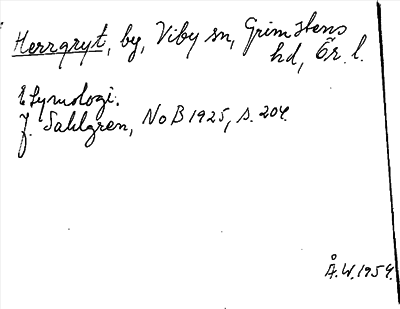 Herrgryt, by, Viby sn, Grimstens
hd, Ör. l.
Etymologi.
J. Sahlgren, NoB 1925, s. 204.
Å.W. 1954.